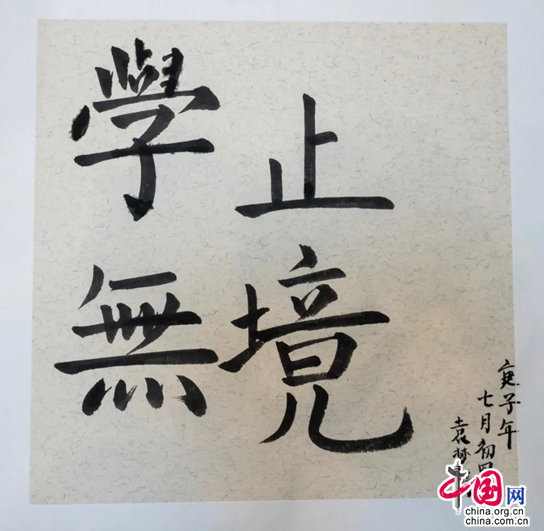 學無
止境
庚子年
七月初四
袁梦
中国网
china.org.cn
china.com.cn